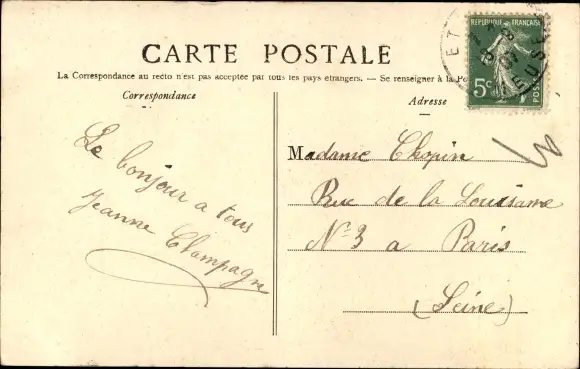 CARTE POSTALE
La Correspondance au recto n'est pas acceptée par tous les pays étrangers. — Se renseigner à la
Correspondance
Adresse
REPUBLIQUE FRANÇAISE
5c
POSTES
MEUSE
Le bonjour a tous
Jeanne Champagn
Madame Chopin
Rue de la Louisiane
N° 3 a Paris
(Seine)